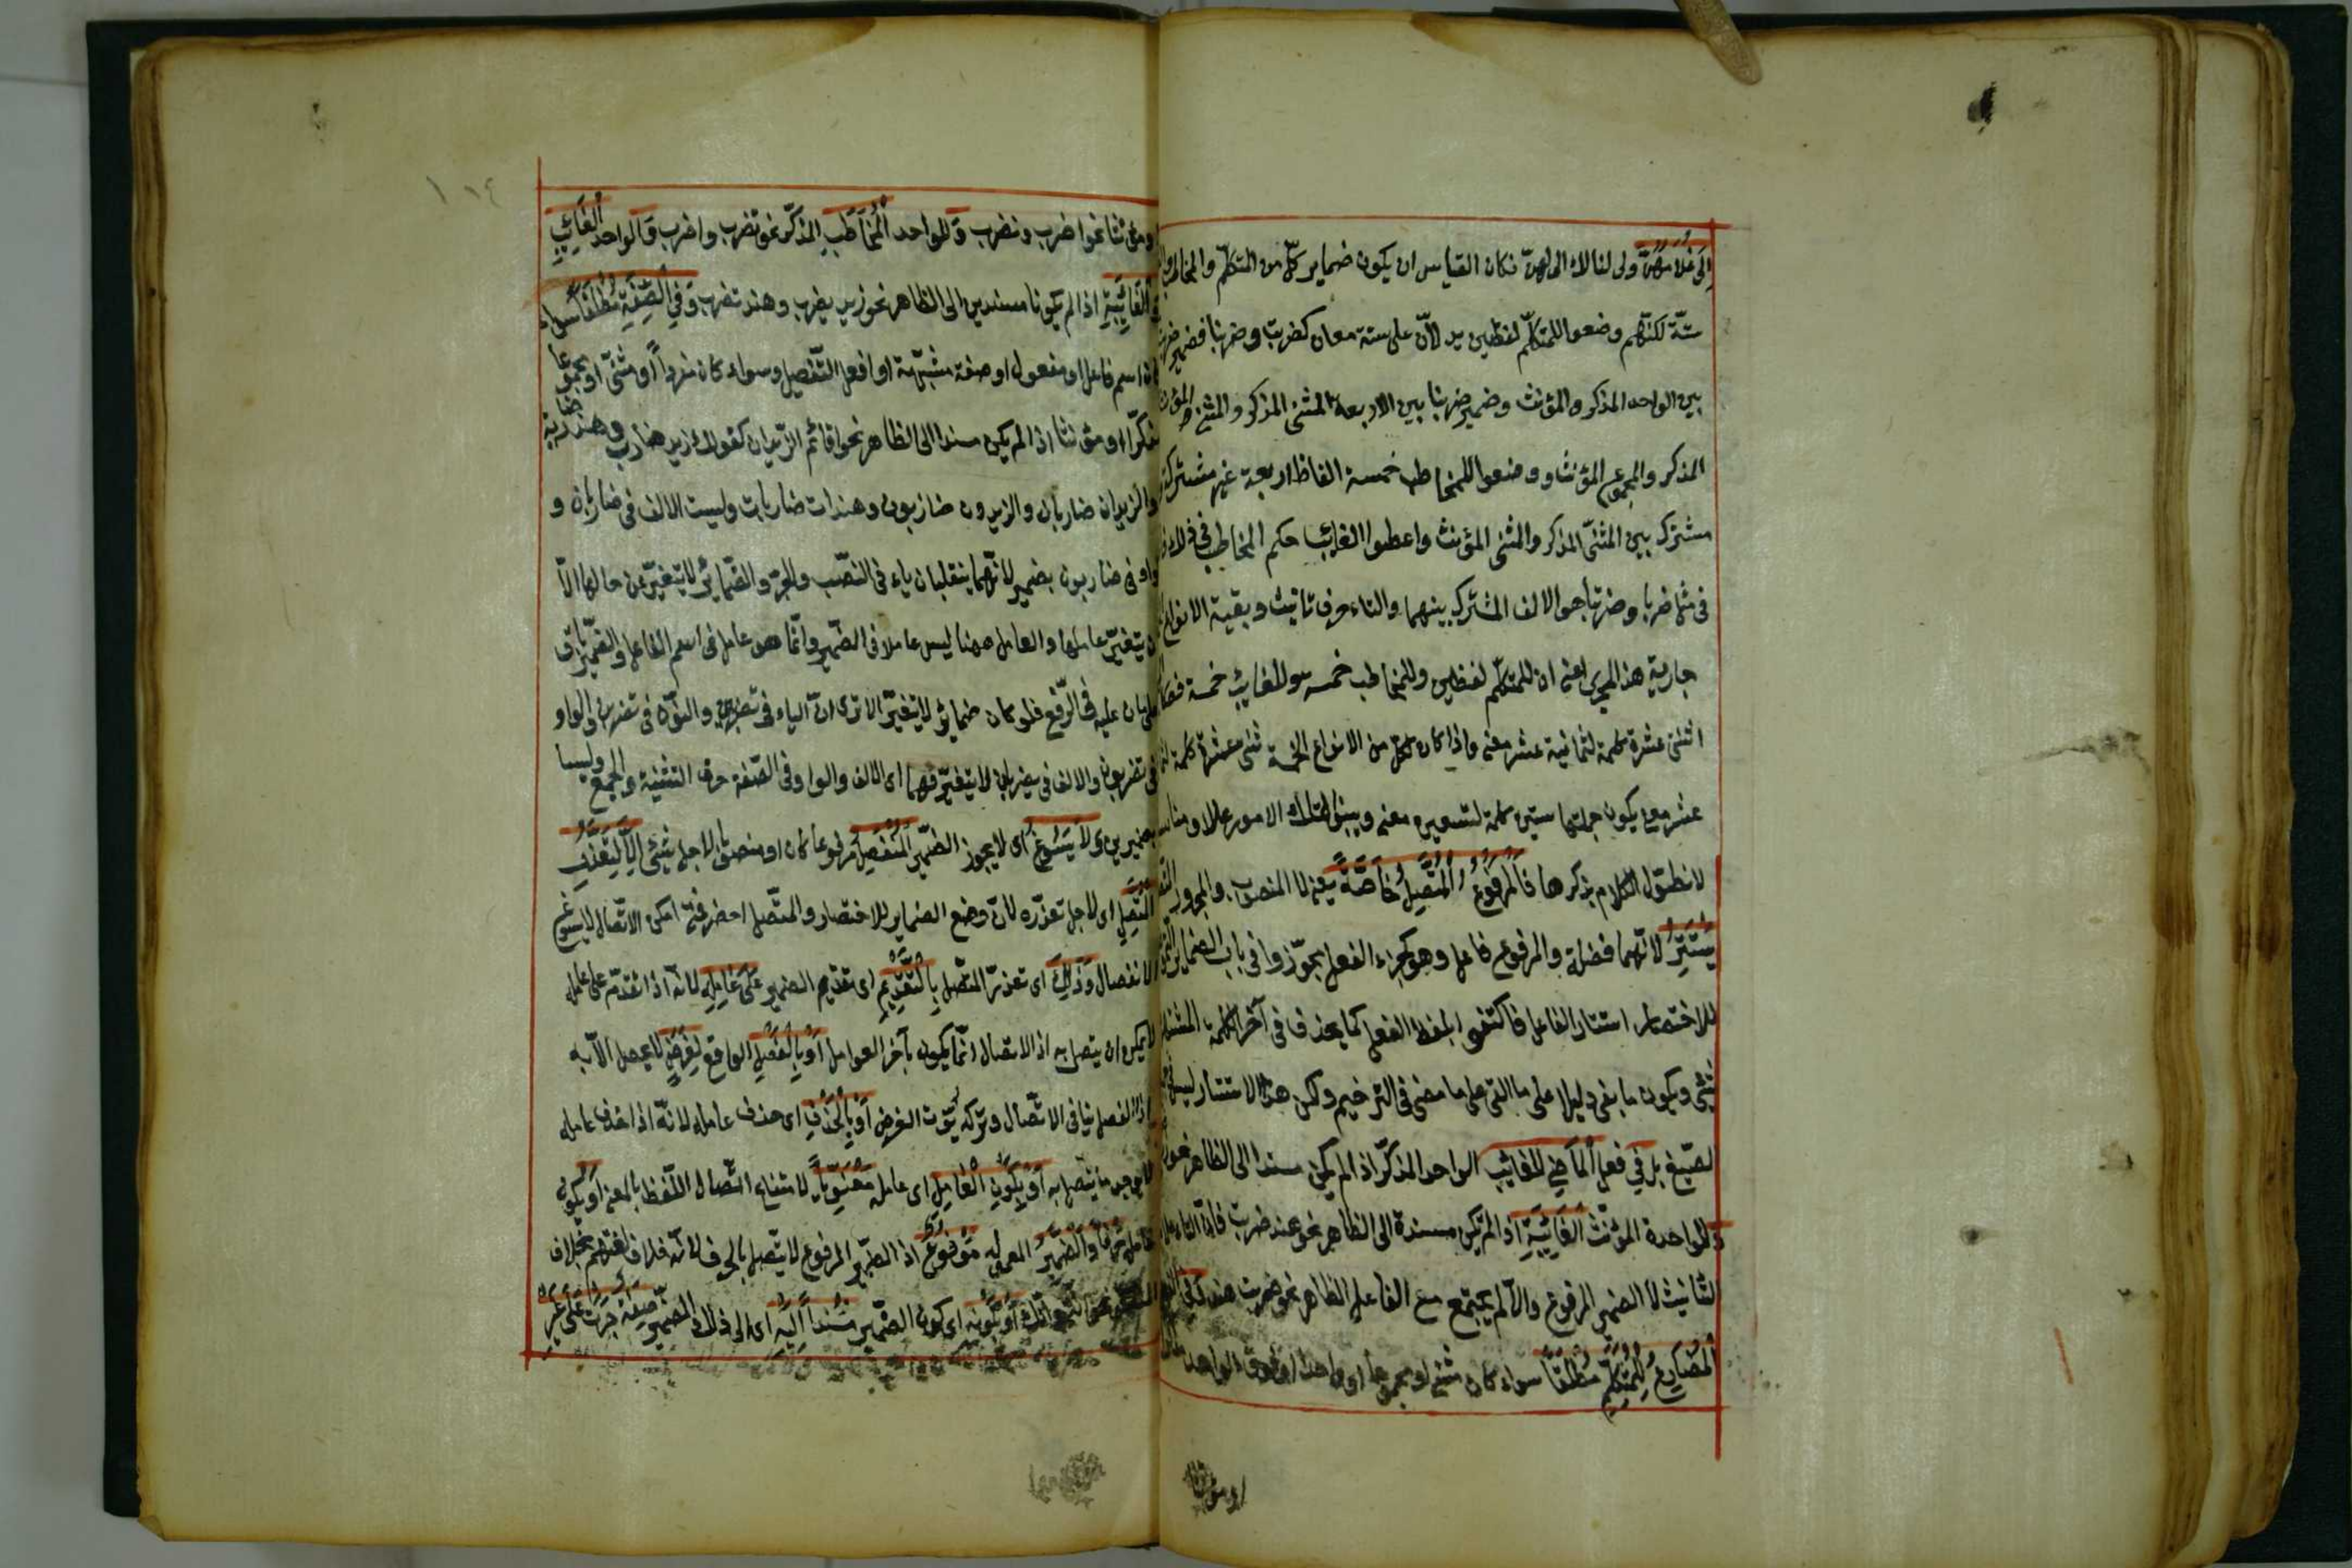 الى غلامهنّ ولى لنا لاء الى لهنّ فكان القياس ان يكون ضماير كلّ من المتكلّم والمخاطب
ستّة لكنّهم وضعوا للمتكلّم لفظين يدلاّن على ستة معان كضربت وضربنا فضمير ضربت
بين الواحد المذكر والمؤنث وضمير ضربنا بين الاربعة المثنى المذكر والمثنى المؤنث
المذكر والمجموع المؤنث ووضعوا للمخاطب خمسة الفاظ اربعة غير مشتركة
مشترك بين المثنّى المذكر والمثنى المؤنث واعطوا الغائب حكم المخاطب فى
فى مثل ضربا وضربتا هو الالف المشترك بينهما والتاء حرف تانيث وبقية الانواع
جارية هذا المجرى اعنى ان للمتكلّم لفظين وللمخاطب خمسة وللغايب خمسة
اثنتى عشرة كلمة لثمانية عشر معنى واذا كان لكل من الانواع الخمسة ثنتى عشرة كلمة
عشر معنى يكون جملتها ستين كلمة لتسعين معنى وبينوا لتلك الامور عللا و
لا نطوّل الكلام بذكرها فَالْمَرْفُوعُ الْمُتَّصِلُ خَاصَّةً يعنى لا المنصوب والمجرور
يَسْتَتِرُ لانّهما فضلة والمرفوع فاعل وهو كجزء الفعل فجوّزوا فى باب الضماير
للاختصار استتار الفاعل فاكتفوا بلفظ الفعل كما يحذف فى آخر الكلمة المشتهرة
شئ ويكون ما بقى دليلا على ما القى على ما مضى فى الترخيم ولكن هذا الاستتار ليس فى
الصّيغ بل فِي فعل اَلْمَاضِى لِلْغَائِبِ الواحد المذكّر اذا لم يكن مسندا الى الظاهر نحو
وَللواحدة المؤنّث اَلْغَائِبَةِ اذا لم تكن مسندة الى الظاهر نحو هند ضربت فانّ التاء
التانيث لا الضمير المرفوع والاّ لم يجتمع مع الفاعل الظاهر نحو ضربت هند وَفِى
اَلْمُضَارِعِ لِلْمُتَكَلِّمِ مُطْلَقًا سواء كان مثنى او مجموعا او واحدا او فوق الواحد
او مؤنثا
١١٤
او مؤنثا نحو اضرب ونضرب وَللواحد اَلْمُخَاطَبِ المذكّر نحو تضرب واضرب وَالواحد الْغَائِبِ
وَالْغَائِبَةِ اذا لم يكونا مسندين الى الظاهر نحو زيد يضرب وهند تضرب وَفِى اَلصِّفَةِ مُطْلَقًا سواء
كان اسم فاعل او مفعول او صفة مشبّهة او افعل التّفضيل وسواء كان مفرداً او مثنىّ او مجموعا
مذكّرا او مؤنثا اذا لم يكن مسندا الى الظاهر نحو اقائم الزّيدان كقولك زيد ضارب وهند ضاربة
والزيدان ضاربان والزيدون ضاربون وهندات ضاربات وليست الالف فى ضاربان و
واو فى ضاربون بضمير لانّهما ينقلبان ياء فى النصّب والجرّ والضّماير لا يتغيّر عن حالها الاّ
ان يتغيّر عاملها والعامل ههنا ليس عاملا فى الضّمير وانّما هو عامل فى اسم الفاعل والضّمير باق
على ما كان عليه فى الرّفع فلو كان ضماير لا يتغيّر الا ترى انّ الياء فى تضربين والنّون فى تضربن والواو
فى تضربون والالف فى يضربان لا يتغيّر فهما اى الالف والواو فى الصّفة حرفا التثنية والجمع وليسا
بضميرين وَ لاَ يَسُوغُ اى لا يجوز الضّمير اَلْمُنْفَصِلُ مرفوعا كان او منصوبا لاجل شئ اِلاَّ لِتَعَذُّرِ
الْمُتَّصِلِ اى لاجل تعذّره لانّ وضع الضماير للاختصار والمتّصل اخصر فمتى امكن الاتّصال لا يسوغ
الانفصال وَذٰلِكَ اى تعذّر المتّصل بِالتَّقْدِيمِ اى تقديم الضمير عَلٰى عَامِلِهِ لانّه اذا تقدّم على عامله
لا يمكن ان يتصل به اذ الاتصال انّما يكون بآخر العوامل اَوْ بِالْفَصْلِ الواقع لِغَرَضٍ لا يحصل الاّ به
اذ الفصل ينافى الاتّصال وتركه يفوّت الغرض اَوْ بِالْحَذْفِ اى حذف عامله لانّه اذا حذف عامله
لا يوجد ما يتصل به اَوْ بِكَوْنِ الْعَامِلِ اى عامله مَعْنَوِيّاً لامتناع اتّصال اللّفظ بالمعنى او بكون
عامله حَرْفًا وَالضَّمِيرُ المعمول له مَرْفُوعٌ اذ الضّمير المرفوع لا يتّصل بالحرف لانّه خلاف لغتهم بخلاف
اَوْ بِكَوْنِهِ اى كون الضّمير مُسْنَداً اِلَيْهِ اى الى ذلك الضّمير صِفَةٌ جَرَتْ عَلٰى غَيْرِ